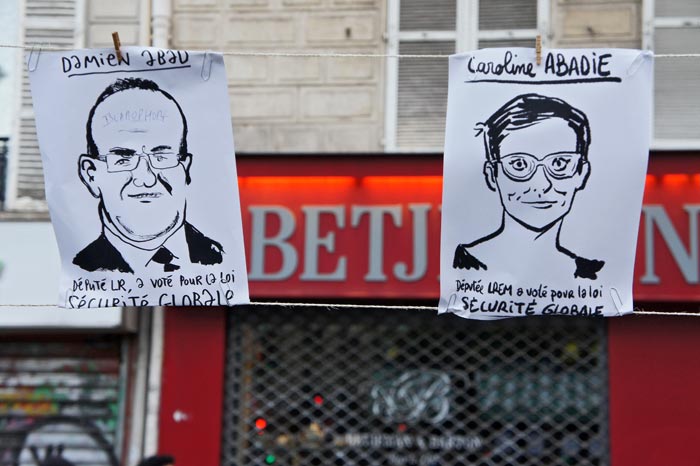 DAMIEN ABAD
ISLAMOPHOBE
DÉPUTÉ LR, A VOTÉ POUR LA LOI
SÉCURITÉ GLOBALE
Caroline ABADIE
Députée LREM a voté pour la loi
SÉCURITÉ GLOBALE
BETJ
N